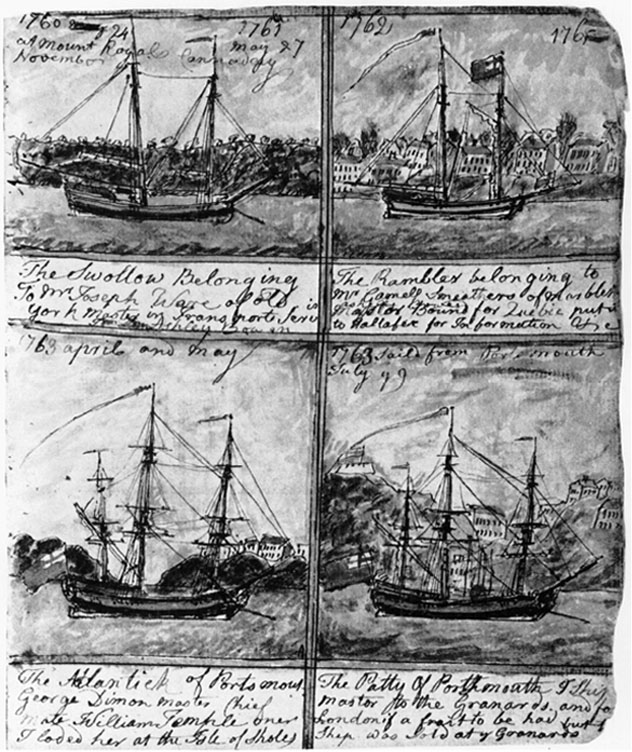 1760 24 1761
at Mount Royal May 27
November Cannaday
The Swollow Belonging
To Mr Joseph Ware of old
York Master in Transport Servi
1762 1765
The Rambler belonging to
Mr Gamell Smeathers of Marbleh
Master Bound for Quebec put in
to Hallafax for Information
1763 april and may
The Atlantick of Portsmout
George Dimon master Chief
mate William Temple oner
I loded her at the Isle of Sholes
1763 Saild from Portsmouth
July 9
The Patty of Portsmouth I Ship
master to the Granards and fo
London if a frait to be had but
Ship was Sold at Granards